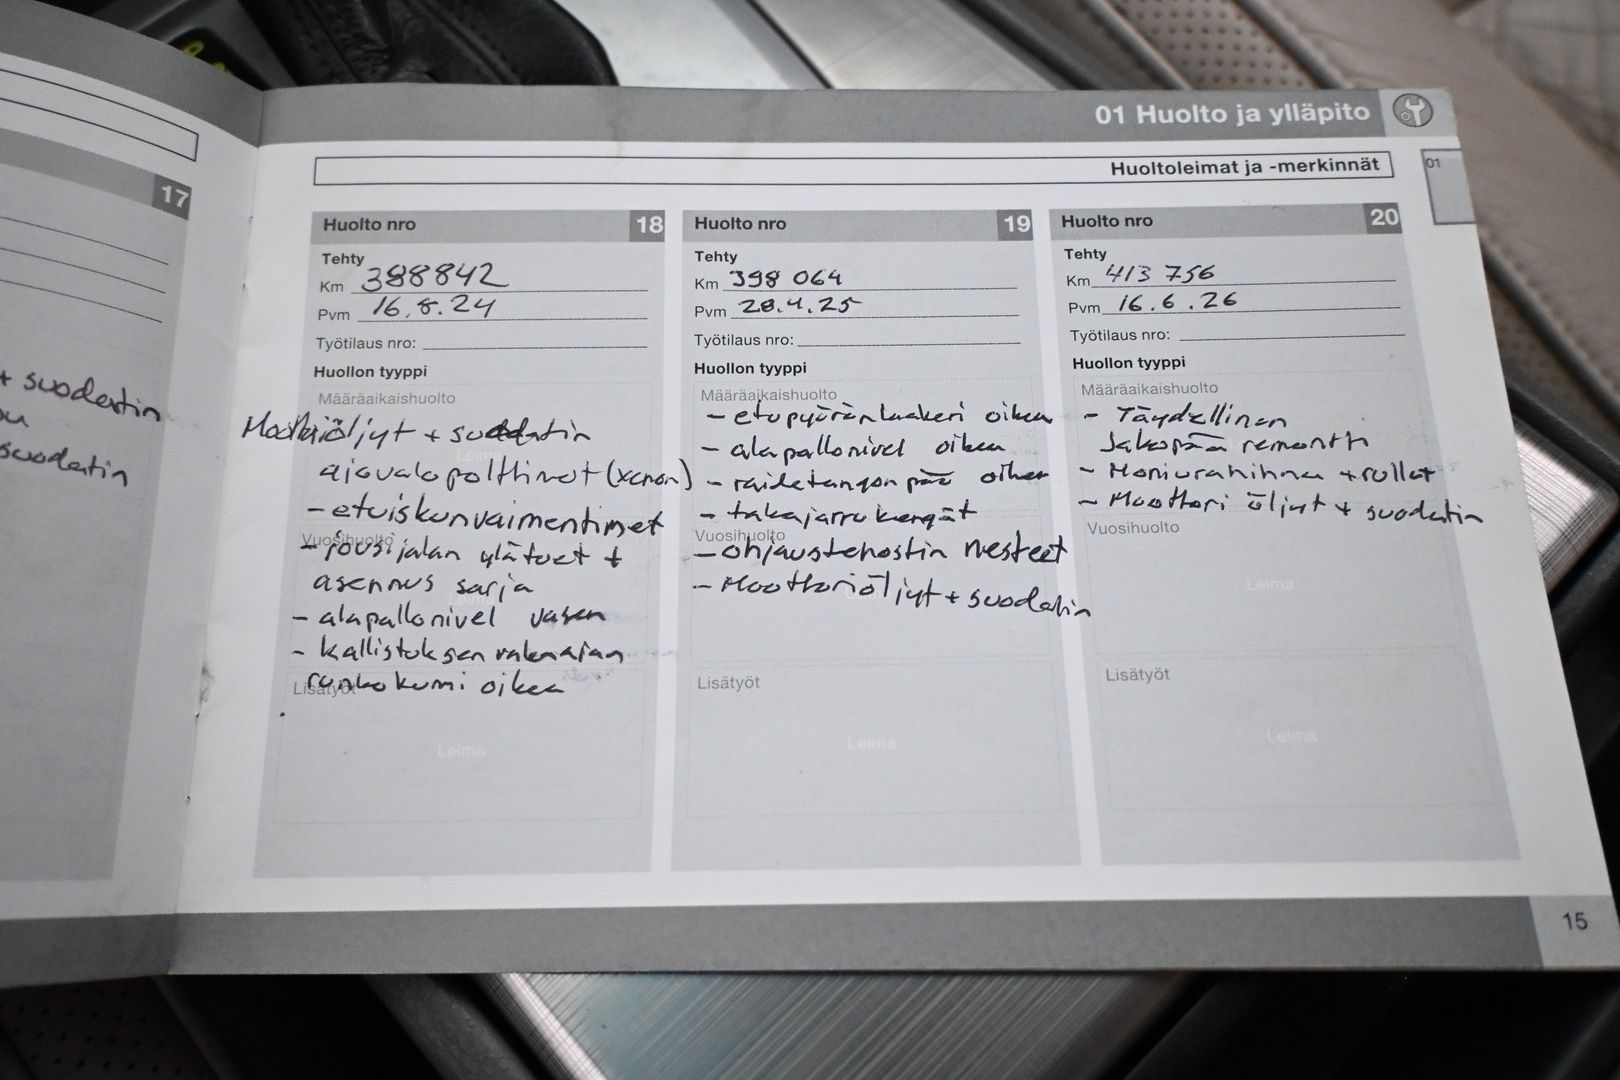 17
+ suodatin
suodatin
01 Huolto ja ylläpito
Huoltoleimat ja -merkinnät
01
Huolto nro 18
Tehty
Km 388842
Pvm 16.8.24
Työtilaus nro:
Huollon tyyppi
Määräaikaishuolto
Moottoriöljyt + suodatin
Leima
ajovalopolttimot (xenon)
- etuiskunvaimentimet
Vuosihuolto
- jousijalan ylätuet +
asennus sarja
- alapallonivel vasen
- kallistuksen vakaajan
runkokumi oikea
Lisätyöt
Leima
Huolto nro 19
Tehty
Km 398 064
Pvm 28.4.25
Työtilaus nro:
Huollon tyyppi
Määräaikaishuolto
- etupyöränlaakeri oikea
- alapallonivel oikea
- raidetangon pää oikea
- takajarrukengät
Vuosihuolto
- ohjaustehostin nesteet
- Moottoriöljyt + suodatin
Lisätyöt
Leima
Huolto nro 20
Tehty
Km 413 756
Pvm 16.6.26
Työtilaus nro:
Huollon tyyppi
Määräaikaishuolto
- Täydellinen
Jakopää remontti
- Moniurahihna + rullat
- Moottori öljyt + suodatin
Vuosihuolto
Leima
Lisätyöt
Leima
15